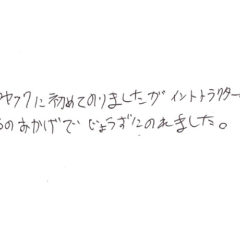 ヤックに初めてのりましたが イントトラクター
のおかげで じょうずにのれました。